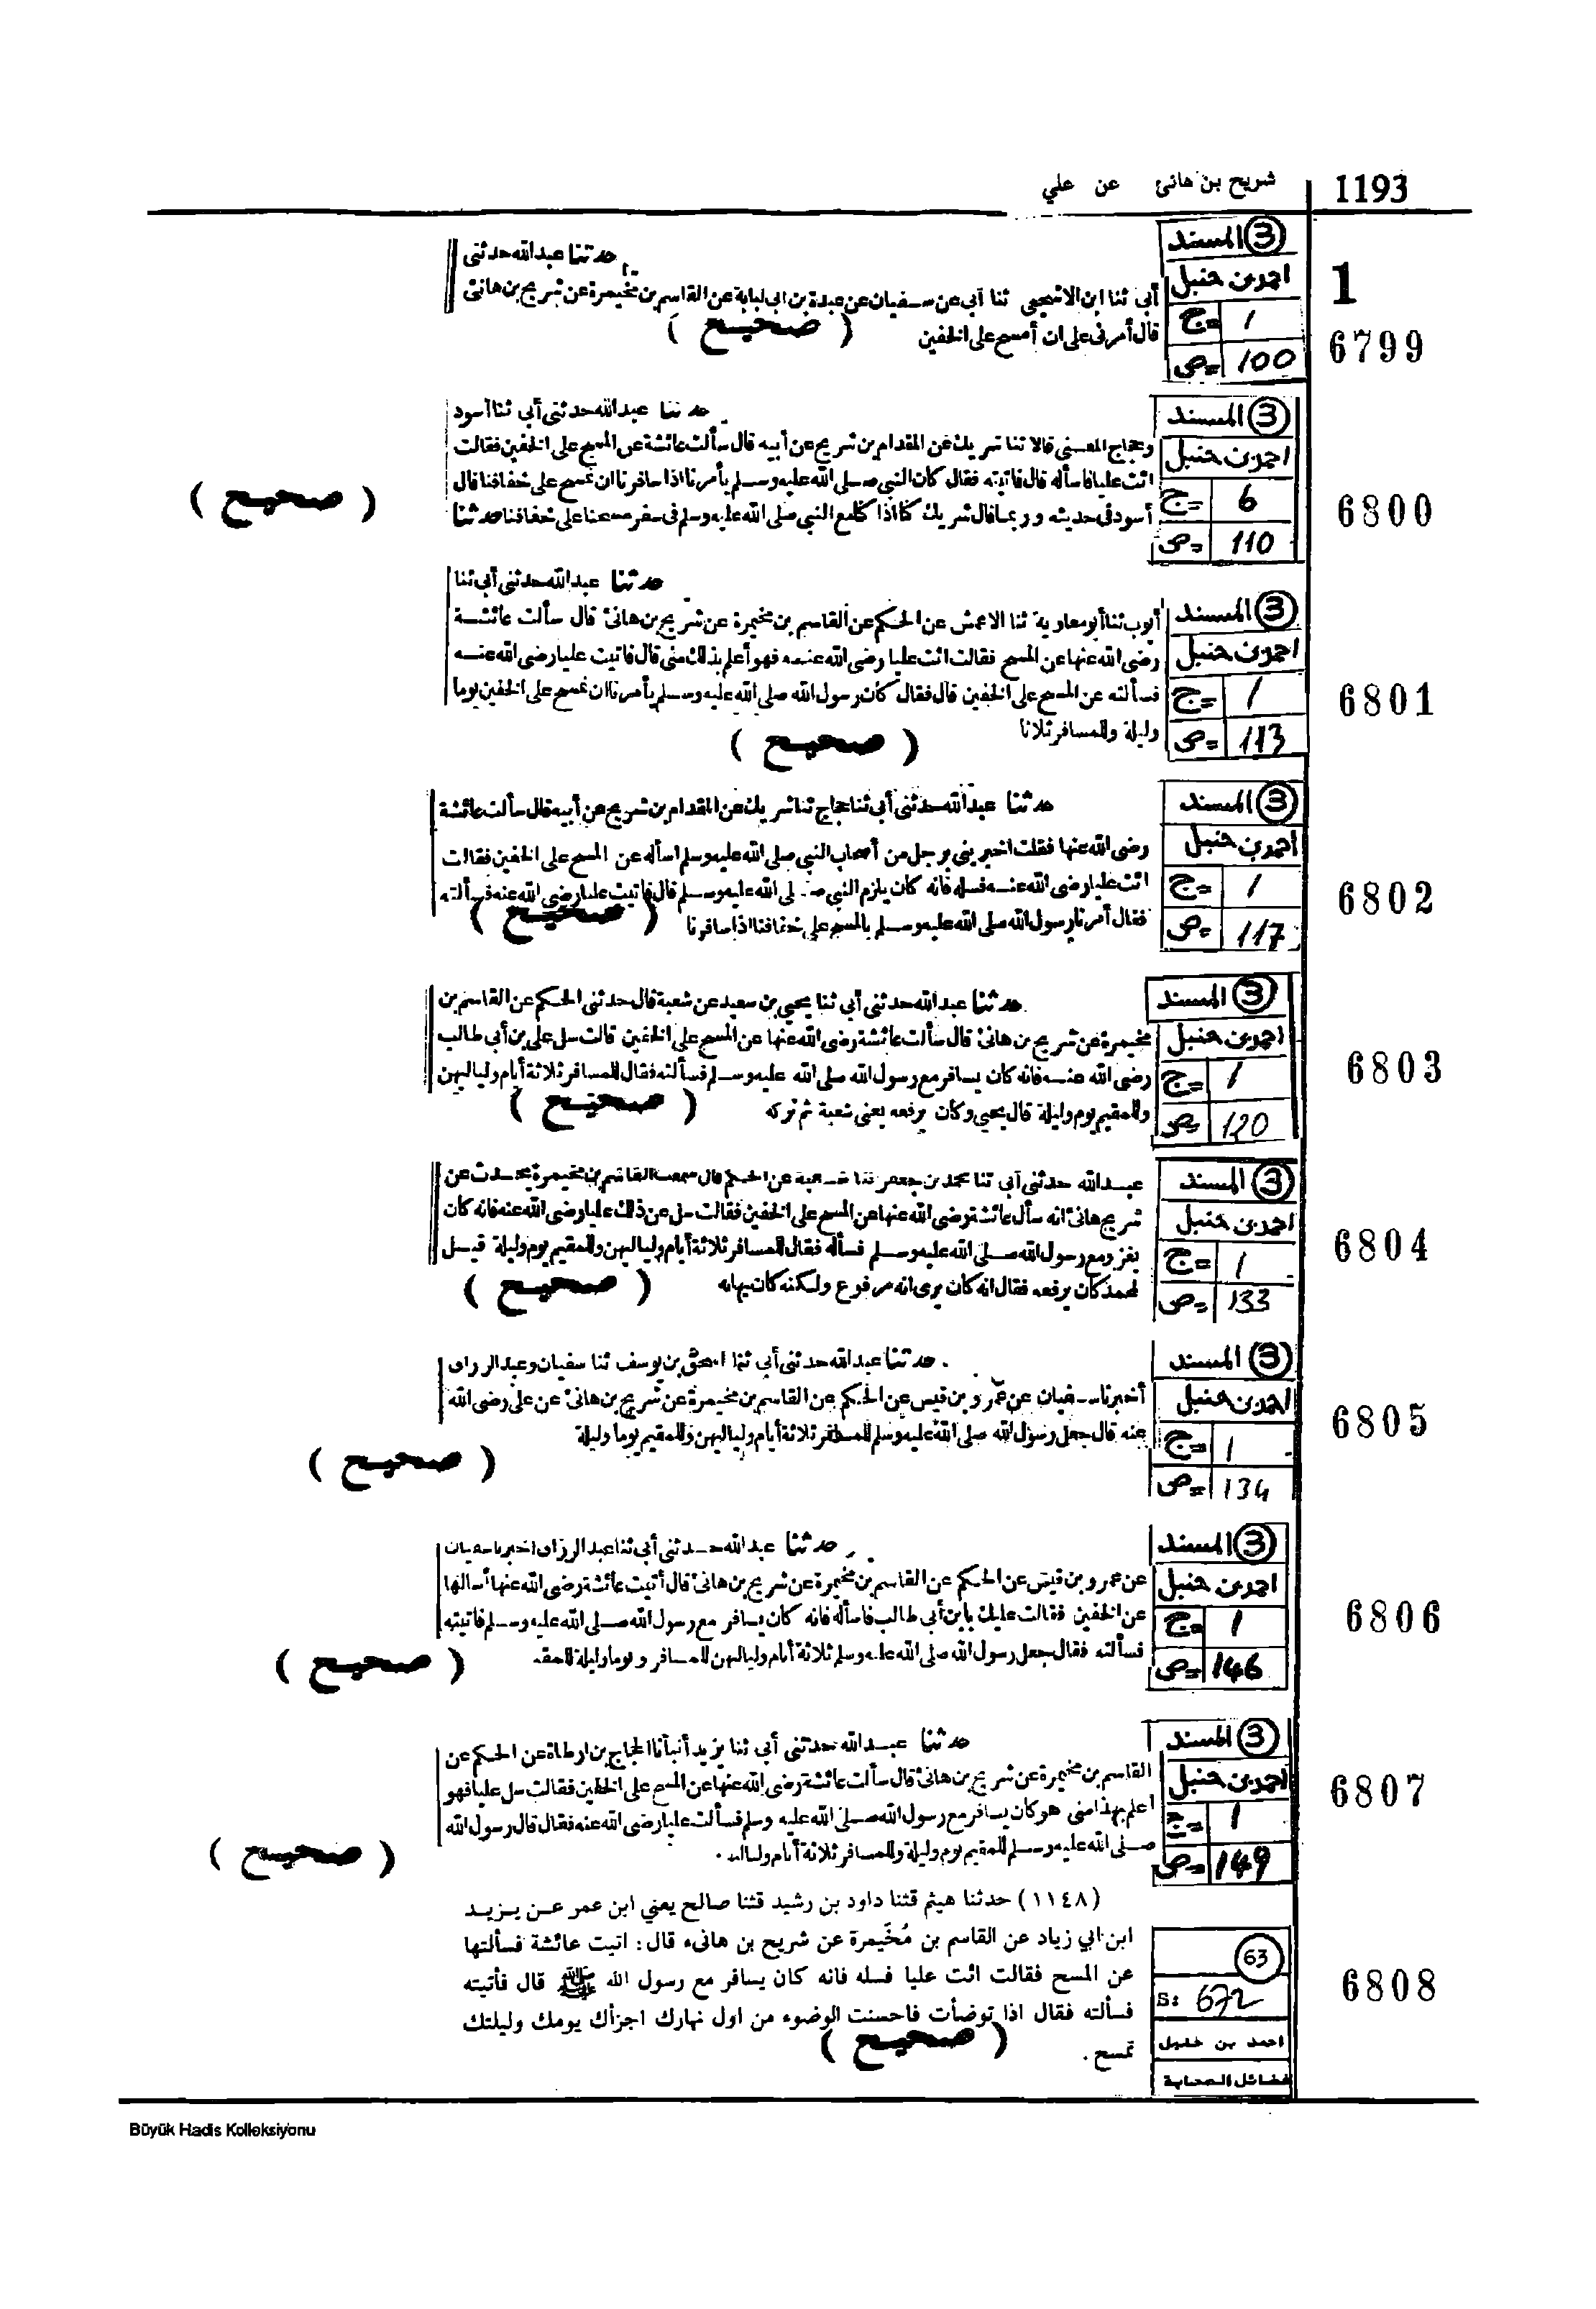 شريح بن هانئ عن علي 1193
③ المسند
احمد بن حنبل
ج= 1
ص= 100
1
6799
حدثنا عبدالله حدثنى
أبى ثنا ابن الاشجعى ثنا أبى عن سفيان عن عبدة بن ابى لبابة عن القاسم بن مخيمرة عن شريح بن هانئ
قال أمرنى على ان أمسح على الخفين
( صحيح )
③ المسند
احمد بن حنبل
ج= 6
ص= 110
6800
حدثنا عبدالله حدثنى أبى ثنا أسود
وحجاج المعنى قالا ثنا شريك عن المقدام بن شريح عن أبيه قال سألت عائشة عن المسح على الخفين فقالت
ائت عليا فاسأله قال فاتيته فقال كان النبى صلى الله عليه وسلم يأمرنا اذا سافرنا ان نمسح على خفافنا قال
أسود فى حديثه وربما قال شريك كنا اذا كنا مع النبى صلى الله عليه وسلم فى سفر مسحنا على خفافنا حدثنا
( صحيح )
③ المسند
احمد بن حنبل
ج= 1
ص= 113
6801
حدثنا عبدالله حدثنى أبى ثنا
أبو معاوية ثنا الاعمش عن الحكم عن القاسم بن مخيمرة عن شريح بن هانئ قال سألت عائشة
رضى الله عنها عن المسح فقالت ائت عليا رضى الله عنه فهو أعلم بذلك منى قال فاتيت عليا رضى الله عنه
فسألته عن المسح على الخفين قال فقال كان رسول الله صلى الله عليه وسلم يأمرنا ان نمسح على الخفين يوما
وليلة وللمسافر ثلاثا
( صحيح )
③ المسند
احمد بن حنبل
ج= 1
ص= 117
6802
حدثنا عبدالله حدثنى أبى ثنا حجاج ثنا شريك عن المقدام بن شريح عن أبيه قال سألت عائشة
رضى الله عنها فقلت اخبرينى برجل من أصحاب النبى صلى الله عليه وسلم اسأله عن المسح على الخفين فقالت
ائت عليا رضى الله عنه فسله فانه كان يلزم النبى صلى الله عليه وسلم قال فاتيت عليا رضى الله عنه فسألته
فقال أمرنا رسول الله صلى الله عليه وسلم بالمسح على خفافنا اذا سافرنا
( صحيح )
③ المسند
احمد بن حنبل
ج= 1
ص= 120
6803
حدثنا عبدالله حدثنى أبى ثنا يحيى بن سعيد عن شعبة قال حدثنى الحكم عن القاسم بن
مخيمرة عن شريح بن هانئ قال سألت عائشة رضى الله عنها عن المسح على الخفين قالت سل على بن أبى طالب
رضى الله عنه فانه كان يسافر مع رسول الله صلى الله عليه وسلم فسألته فقال للمسافر ثلاثة أيام ولياليهن
وللمقيم يوم وليلة قال يحيى وكان يرفعه يعنى شعبة ثم تركه
( صحيح )
③ المسند
احمد بن حنبل
ج= 1
ص= 133
6804
عبدالله حدثنى أبى ثنا محمد بن جعفر ثنا شعبة عن الحكم قال سمعت القاسم بن مخيمرة يحدث عن
شريح بن هانئ انه سأل عائشة رضى الله عنها عن المسح على الخفين فقالت سل عن ذلك عليا رضى الله عنه فانه كان
يغزو مع رسول الله صلى الله عليه وسلم فسأله فقال للمسافر ثلاثة أيام ولياليهن وللمقيم يوم وليلة قيل
لمحمد كان يرفعه فقال انه كان يرى انه مرفوع ولكنه كان يهابه
( صحيح )
③ المسند
احمد بن حنبل
ج= 1
ص= 134
6805
حدثنا عبدالله حدثنى أبى ثنا اسحق بن يوسف ثنا سفيان وعبد الرزاق
أخبرنا سفيان عن عمرو بن قيس عن الحكم عن القاسم بن مخيمرة عن شريح بن هانئ عن على رضى الله
عنه قال جعل رسول الله صلى الله عليه وسلم للمسافر ثلاثة أيام ولياليهن وللمقيم يوما وليلة
( صحيح )
③ المسند
احمد بن حنبل
ج= 1
ص= 146
6806
حدثنا عبدالله حدثنى أبى ثنا عبد الرزاق اخبرنا سفيان
عن عمرو بن قيس عن الحكم عن القاسم بن مخيمرة عن شريح بن هانئ قال أتيت عائشة رضى الله عنها أسألها
عن الخفين فقالت عليك بابن أبى طالب فاسأله فانه كان يسافر مع رسول الله صلى الله عليه وسلم فاتيته
فسألته فقال جعل رسول الله صلى الله عليه وسلم ثلاثة أيام ولياليهن للمسافر ويوما وليلة للمقيم
( صحيح )
③ المسند
احمد بن حنبل
ج= 1
ص= 149
6807
حدثنا عبدالله حدثنى أبى ثنا يزيد أنبأنا الحجاج بن ارطاة عن الحكم عن
القاسم بن مخيمرة عن شريح بن هانئ قال سألت عائشة رضى الله عنها عن المسح على الخفين فقالت سل عليا فهو
اعلم بهذا منى هو كان يسافر مع رسول الله صلى الله عليه وسلم فسألت عليا رضى الله عنه فقال قال رسول الله
صلى الله عليه وسلم للمقيم يوم وليلة وللمسافر ثلاثة أيام ولياليهن .
( صحيح )
63
S: 672
احمد بن حنبل
فضائل الصحابة
6808
(١١٤٨) حدثنا هيثم قثنا داود بن رشيد قثنا صالح يعني ابن عمر عن يزيد
ابن ابي زياد عن القاسم بن مُخَيمرة عن شريح بن هانىء قال : اتيت عائشة فسألتها
عن المسح فقالت ائت عليا فسله فانه كان يسافر مع رسول الله ﷺ قال فأتيته
فسألته فقال اذا توضأت فاحسنت الوضوء من اول نهارك اجزأك يومك وليلتك
تمسح .
( صحيح )
Büyük Hadis Kolleksiyonu